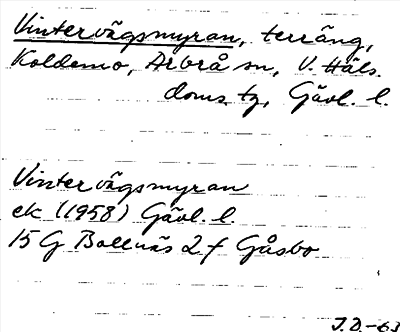 Vintervägsmyran, terräng,
Koldemo, Arbrå sn, V. Häls.
doms. tg, Gävl. l.
Vintervägsmyran
ek (1958) Gävl. l.
15 G Bollnäs 2 f Gåsbo
J.D.-63